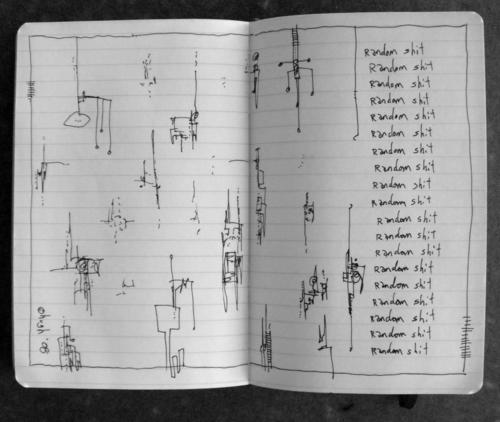 Random shit
Random shit
Random shit
Random shit
Random shit
Random shit
Random shit
Random shit
Random shit
Random shit
Random shit
Random shit
Random shit
Random shit
Random shit
Random shit
Random shit
Random shit
Random shit